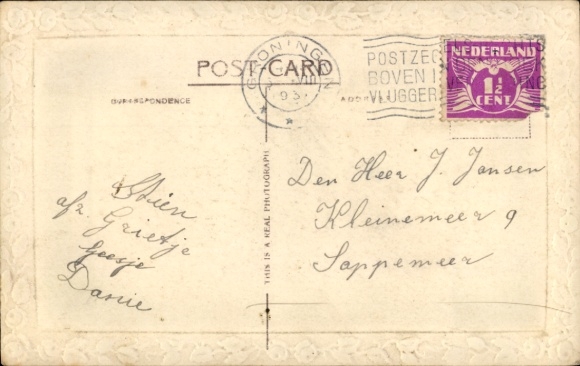 POST-CARD
CORRESPONDENCE
GRONINGEN
POSTZEG
BOVEN
VLUGGER
NEDERLAND
1½
CENT
THIS IS A REAL PHOTOGRAPH
Stien
afz. Grietje
Geesje
Den Heer J. Jansen
Kleinemeer 9
Sappemeer